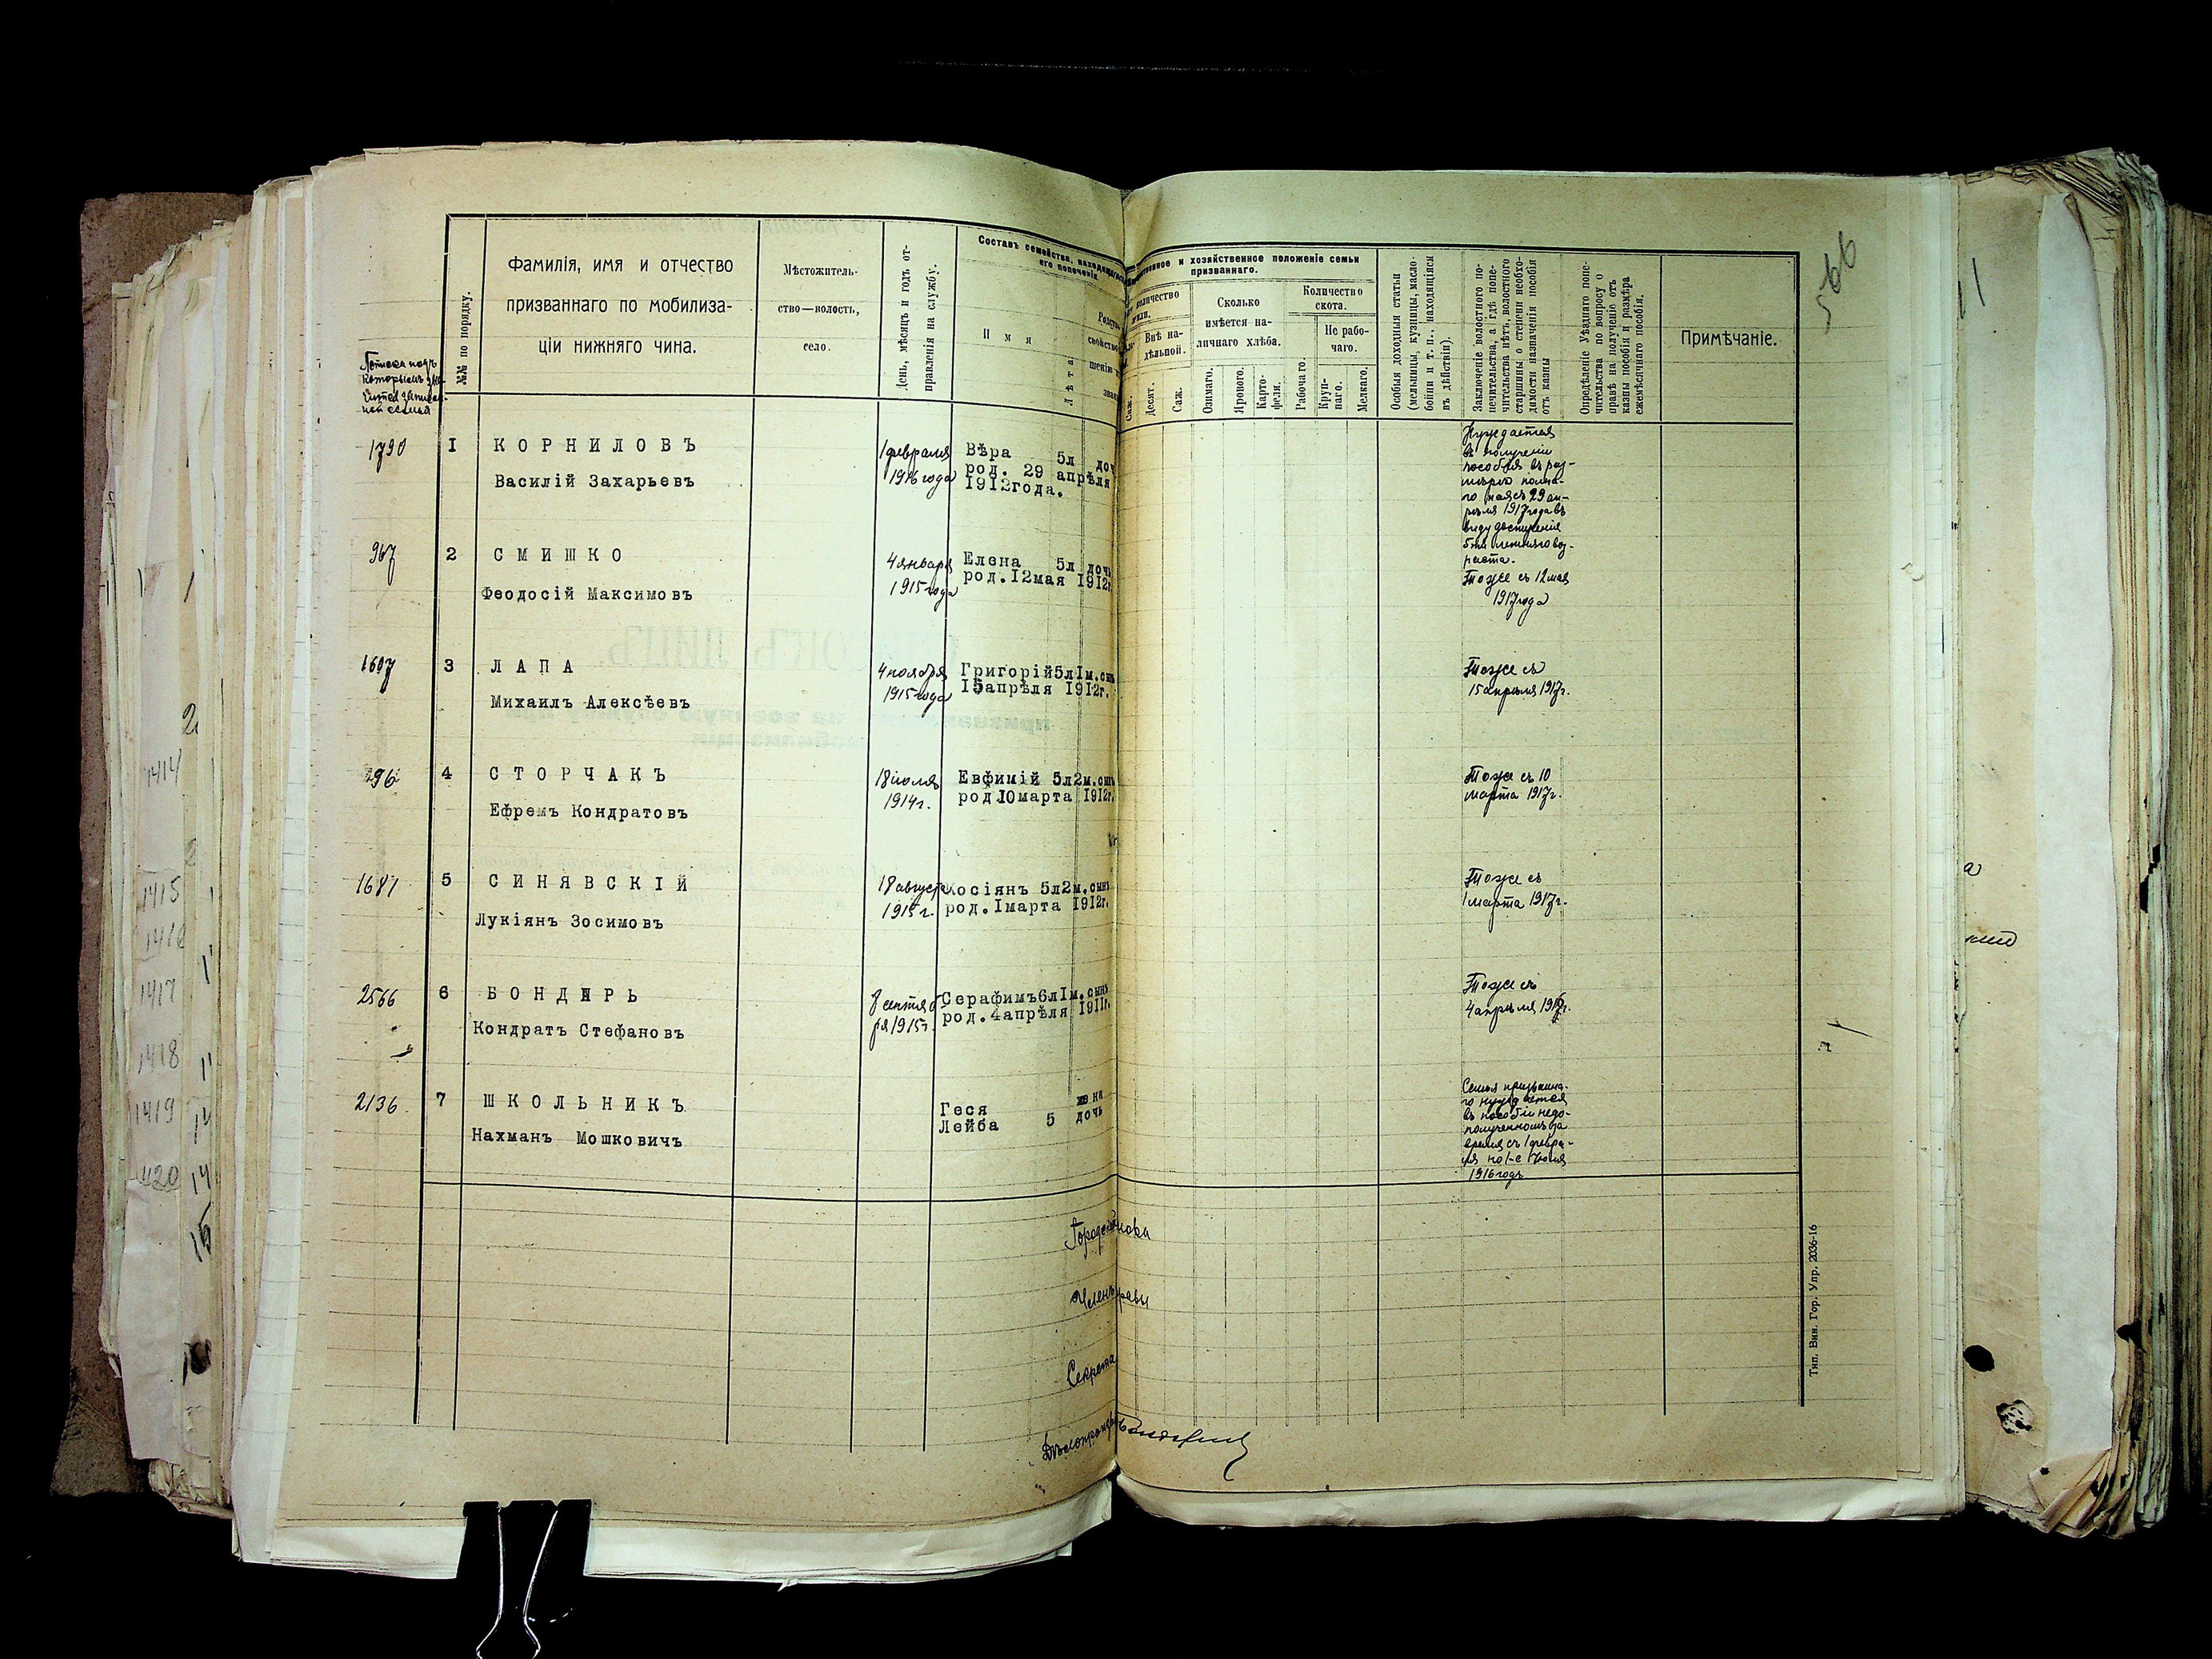 566
№№ по порядку.
Фамилія, имя и отчество
призваннаго по мобилиза-
ціи нижняго чина.
Мѣстожитель-
ство—волость,
село.
День, мѣсяцъ и годъ от-
правленія на службу.
Составъ семейства, находящагося
его попеченіи
И м я
Лѣта
Родство
свойство
шенію
зван
хозяйственное положеніе семьи
призваннаго.
количество
Внѣ на-
дѣльной.
Саж.
Десят.
Саж.
Сколько
имѣется на-
личнаго хлѣба.
Озимаго.
Ярового.
Карто-
фели.
Количество
скота.
Рабочаго.
Не рабо-
чаго.
Круп-
наго.
Мелкаго.
Особыя доходныя статьи
(мельницы, кузницы, масло-
бойни и т. п., находящіяся
въ дѣйствіи).
Заключеніе волостного по-
печительства, а гдѣ попе-
чительства нѣтъ, волостного
старшины о степени необхо-
димости назначенія пособія
отъ казны
Опредѣленіе Уѣзднаго попе-
чительства по вопросу о
правѣ на полученіе отъ
казны пособія и размѣра
ежемѣсячнаго пособія.
Примѣчаніе.
1790
1
КОРНИЛОВЪ
Василій Захарьевъ
1 февраля
1916 года
Вѣра 5л доч
род. 29 апрѣля
1912года.
Нуждается
въ полученіи
пособія въ раз-
мѣрѣ полна-
го пая съ 29 ап-
рѣля 1917 года въ
виду достиженія
5ти лѣтняго воз-
раста.
967
2
СМИШКО
Феодосій Максимовъ
4 января
1915 года
Елена 5л дочь
род. 12мая 1912г
Тоже съ 12 мая
1917 года
1607
3
ЛАПА
Михаилъ Алексѣевъ
4 ноября
1915 года
Григорій5л1м.сын
15апрѣля 1912г.
Тоже съ
15 апрѣля 1917г.
296
4
СТОРЧАКЪ
Ефремъ Кондратовъ
18 іюля
1914г.
Евфимій 5л2м.сын
род.10марта 1912г.
Тоже съ 10
марта 1917г.
1681
5
СИНЯВСКІЙ
Лукіянъ Зосимовъ
18 августа
1915г.
Косіянъ 5л2м.сынъ
род.1марта 1912г.
Тоже съ
1 марта 1917г.
2566
6
БОНДАРЬ
Кондратъ Стефановъ
8 сентяб
ря 1915г.
Серафимъ6л1м.сынъ
род.4апрѣля 1911г.
Тоже съ
4 апрѣля
2136.
7
ШКОЛЬНИКЪ
Нахманъ Мошковичъ
Геся жена
Лейба 5 дочь
Семья призванна-
го нуждается
въ пособіи недо-
полученномъ за
время съ 1 февра-
ля по 1-е Іюля
1916 года
Секрета
Тип. Вин. Гор. Упр. 2036-16
1414
1415
1416
1417
1418
1419
1420